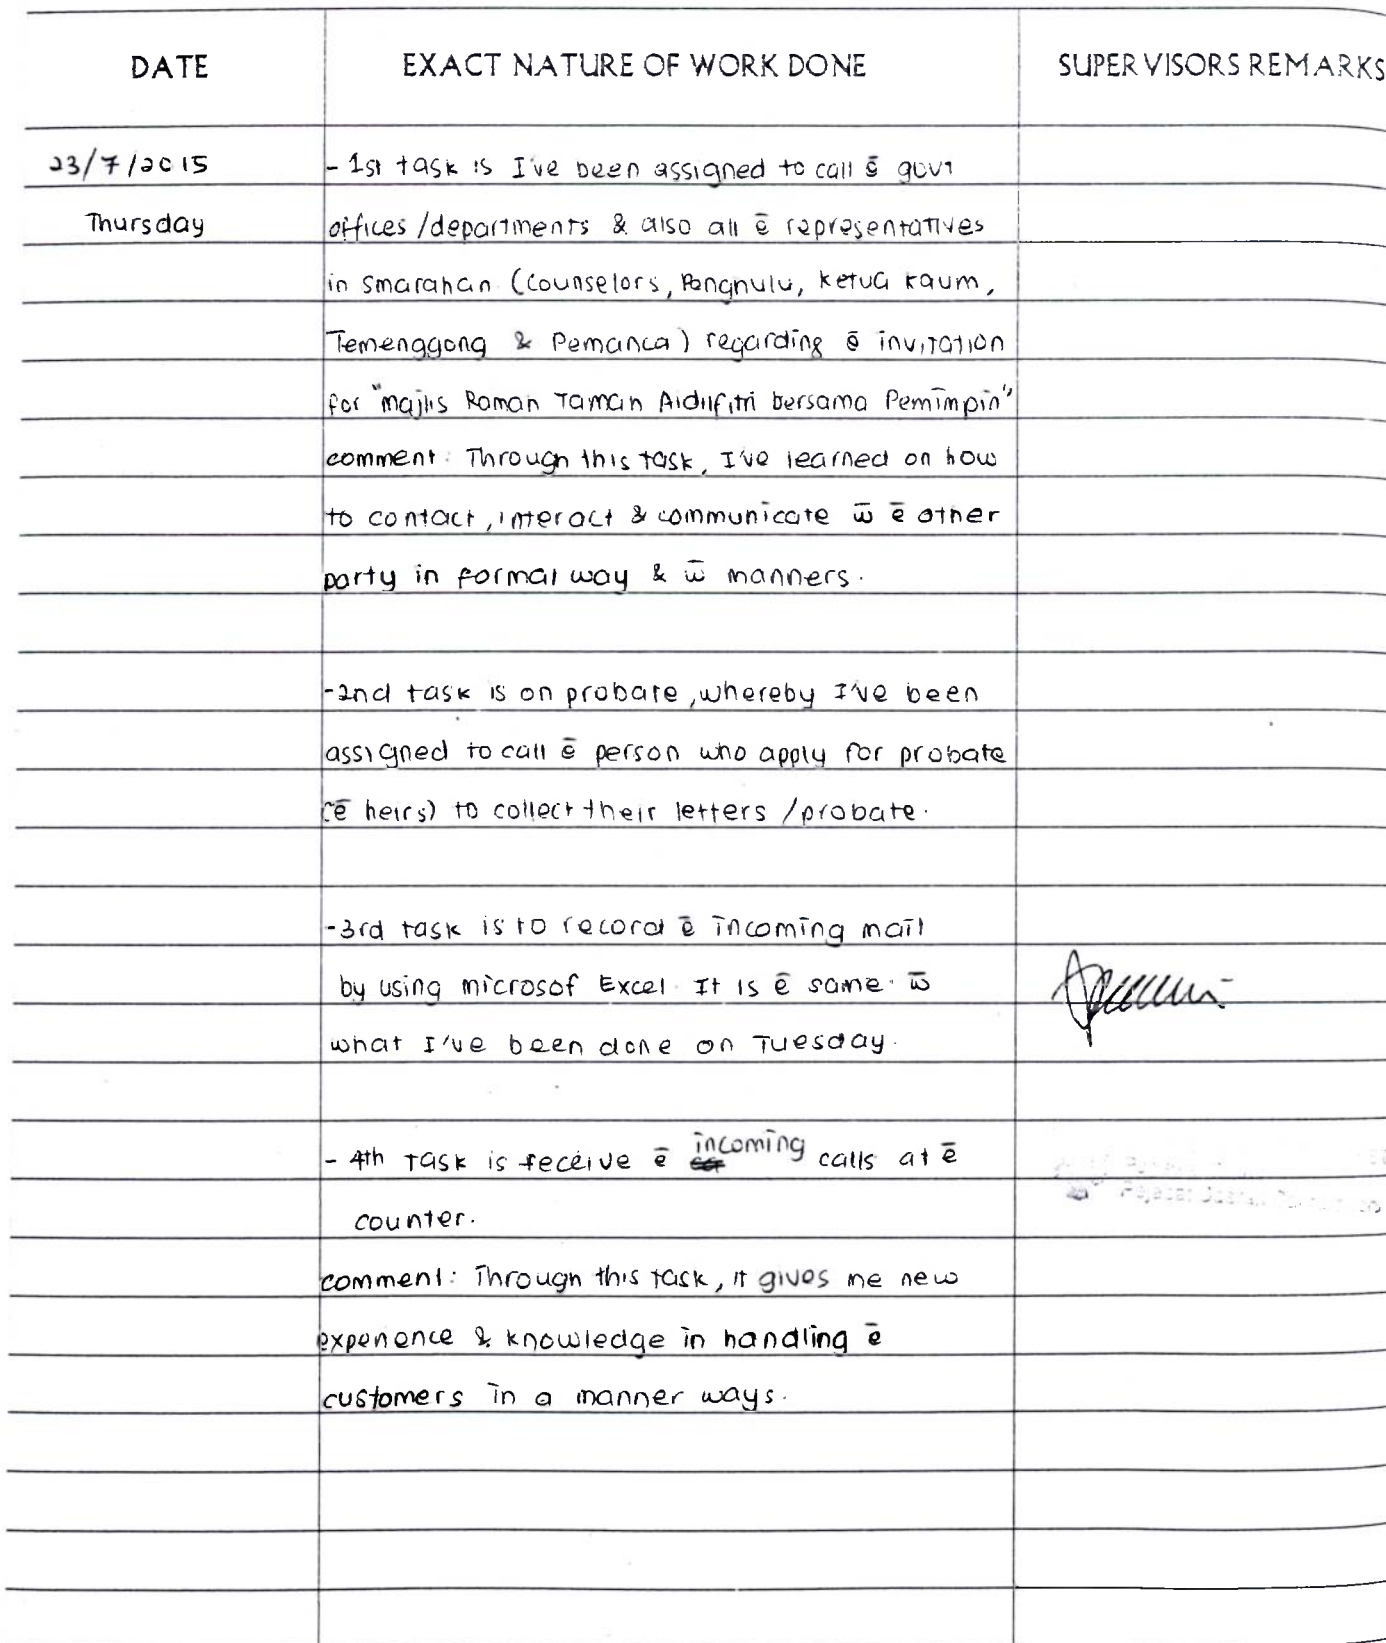 DATE EXACT NATURE OF WORK DONE SUPERVISORS REMARKS
23/7/2015 - 1st task is I've been assigned to call ē govt
Thursday offices/departments & also all ē representatives
in Smarahan (Counselors, Penghulu, Ketua Kaum,
Temenggong & Pemanca) regarding ē invitation
for "Majlis Raman Taman Aidilfitri bersama Pemimpin"
comment: Through this task, I've learned on how
to contact, interact & communicate w̄ ē other
party in formal way & w̄ manners.
-2nd task is on probate, whereby I've been
assigned to call ē person who apply for probate
(ē heirs) to collect their letters/probate.
-3rd task is to record ē incoming mail
by using microsof Excel. It is ē same w̄
what I've been done on Tuesday.
- 4th task is receive ē incoming calls at ē
counter.
comment: Through this task, it gives me new
experience & knowledge in handling ē
customers in a manner ways.